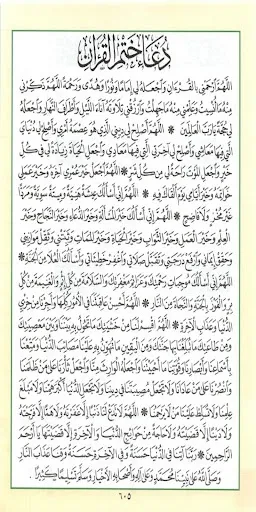 دُعَاءُ خَتْمِ الْقُرْآنِ
اللَّهُمَّ ارْحَمْنِي بِالْقُرْءَانِ وَاجْعَلْهُ لِي إِمَامًا وَنُورًا وَهُدًى وَرَحْمَةً اللَّهُمَّ ذَكِّرْنِي
مِنْهُ مَا نَسِيتُ وَعَلِّمْنِي مِنْهُ مَا جَهِلْتُ وَارْزُقْنِي تِلَاوَتَهُ آنَاءَ اللَّيْلِ وَأَطْرَافَ النَّهَارِ وَاجْعَلْهُ
لِي حُجَّةً يَارَبَّ الْعَالَمِينَ * اللَّهُمَّ أَصْلِحْ لِي دِينِي الَّذِي هُوَ عِصْمَةُ أَمْرِي وَأَصْلِحْ لِي دُنْيَايَ
الَّتِي فِيهَا مَعَاشِي وَأَصْلِحْ لِي آخِرَتِي الَّتِي فِيهَا مَعَادِي وَاجْعَلِ الْحَيَاةَ زِيَادَةً لِي فِي كُلِّ
خَيْرٍ وَاجْعَلِ الْمَوْتَ رَاحَةً لِي مِنْ كُلِّ شَرٍّ * اللَّهُمَّ اجْعَلْ خَيْرَ عُمْرِي آخِرَهُ وَخَيْرَ عَمَلِي
خَوَاتِمَهُ وَخَيْرَ أَيَّامِي يَوْمَ أَلْقَاكَ فِيهِ * اللَّهُمَّ إِنِّي أَسْأَلُكَ عِيشَةً هَنِيَّةً وَمِيتَةً سَوِيَّةً وَمَرَدًّا
غَيْرَ مُخْزٍ وَلَا فَاضِحٍ * اللَّهُمَّ إِنِّي أَسْأَلُكَ خَيْرَ الْمَسْأَلَةِ وَخَيْرَ الدُّعَاءِ وَخَيْرَ النَّجَاحِ وَخَيْرَ
الْعِلْمِ وَخَيْرَ الْعَمَلِ وَخَيْرَ الثَّوَابِ وَخَيْرَ الْحَيَاةِ وَخَيْرَ الْمَمَاتِ وَثَبِّتْنِي وَثَقِّلْ مَوَازِينِي
وَحَقِّقْ إِيمَانِي وَارْفَعْ دَرَجَتِي وَتَقَبَّلْ صَلَاتِي وَاغْفِرْ خَطِيئَاتِي وَأَسْأَلُكَ الْعُلَا مِنَ الْجَنَّةِ *
اللَّهُمَّ إِنِّي أَسْأَلُكَ مُوجِبَاتِ رَحْمَتِكَ وَعَزَائِمَ مَغْفِرَتِكَ وَالسَّلَامَةَ مِنْ كُلِّ إِثْمٍ وَالْغَنِيمَةَ مِنْ كُلِّ
بِرٍّ وَالْفَوْزَ بِالْجَنَّةِ وَالنَّجَاةَ مِنَ النَّارِ * اللَّهُمَّ أَحْسِنْ عَاقِبَتَنَا فِي الْأُمُورِ كُلِّهَا وَأَجِرْنَا مِنْ خِزْيِ
الدُّنْيَا وَعَذَابِ الْآخِرَةِ * اللَّهُمَّ اقْسِمْ لَنَا مِنْ خَشْيَتِكَ مَا تَحُولُ بِهِ بَيْنَنَا وَبَيْنَ مَعْصِيَتِكَ
وَمِنْ طَاعَتِكَ مَا تُبَلِّغُنَا بِهَا جَنَّتَكَ وَمِنَ الْيَقِينِ مَا تُهَوِّنُ بِهِ عَلَيْنَا مَصَائِبَ الدُّنْيَا وَمَتِّعْنَا
بِأَسْمَاعِنَا وَأَبْصَارِنَا وَقُوَّتِنَا مَا أَحْيَيْتَنَا وَاجْعَلْهُ الْوَارِثَ مِنَّا وَاجْعَلْ ثَأْرَنَا عَلَى مَنْ ظَلَمَنَا
وَانْصُرْنَا عَلَى مَنْ عَادَانَا وَلَا تَجْعَلْ مُصِيبَتَنَا فِي دِينِنَا وَلَا تَجْعَلِ الدُّنْيَا أَكْبَرَ هَمِّنَا وَلَا مَبْلَغَ
عِلْمِنَا وَلَا تُسَلِّطْ عَلَيْنَا مَنْ لَا يَرْحَمُنَا * اللَّهُمَّ لَا تَدَعْ لَنَا ذَنْبًا إِلَّا غَفَرْتَهُ وَلَا هَمًّا إِلَّا فَرَّجْتَهُ
وَلَا دَيْنًا إِلَّا قَضَيْتَهُ وَلَا حَاجَةً مِنْ حَوَائِجِ الدُّنْيَا وَالْآخِرَةِ إِلَّا قَضَيْتَهَا يَا أَرْحَمَ
الرَّاحِمِينَ * رَبَّنَا آتِنَا فِي الدُّنْيَا حَسَنَةً وَفِي الْآخِرَةِ حَسَنَةً وَقِنَا عَذَابَ النَّارِ
وَصَلَّى اللَّهُ عَلَى نَبِيِّنَا مُحَمَّدٍ وَعَلَى آلِهِ وَأَصْحَابِهِ الْأَخْيَارِ وَسَلَّمَ تَسْلِيمًا كَثِيرًا .
٦٠٥